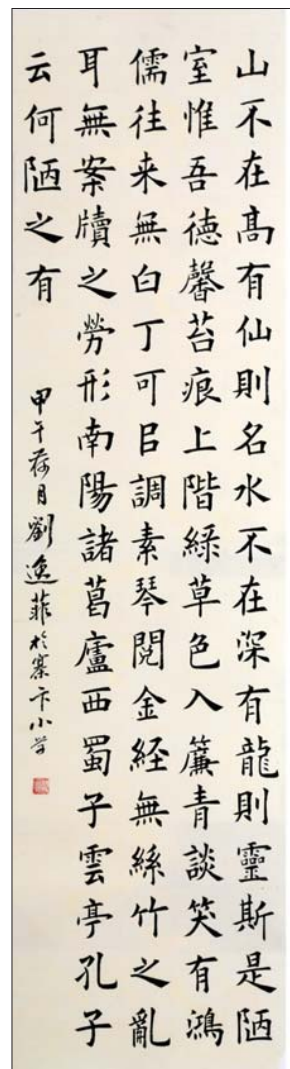 山不在高有仙則名水不在深有龍則靈斯是陋
室惟吾德馨苔痕上階綠草色入簾青談笑有鴻
儒往来無白丁可㠯調素琴閱金経無絲竹之亂
耳無案牘之勞形南陽諸葛廬西蜀子雲亭孔子
云何陋之有
甲午荷月劉逸菲於寨卞小学